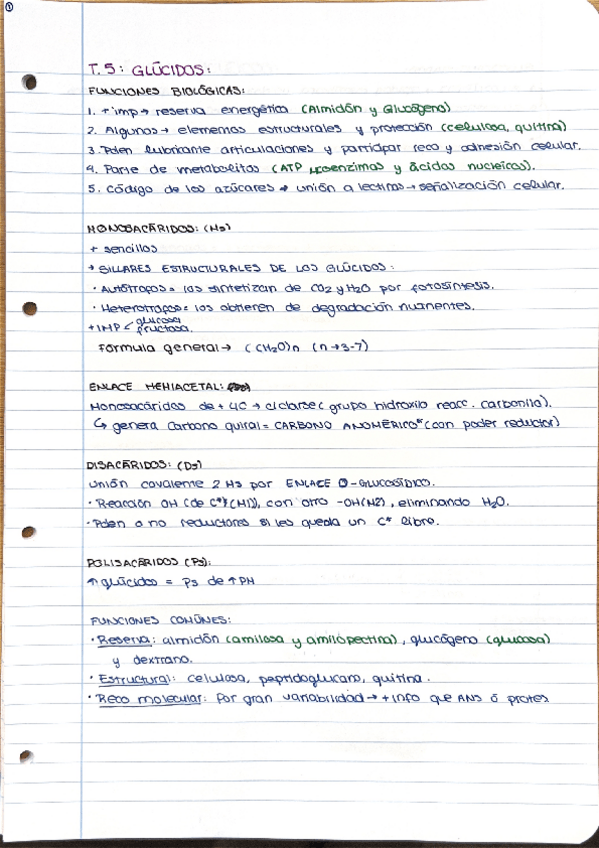 ①
T.5: GLÚCIDOS:
FUNCIONES BIOLÓGICAS:
1. + imp → reserva energética (Almidón y Glucógeno)
2. Algunos → elementos estructurales y protección (celulosa, quitina)
3. Pden lubricante articulaciones y participar reco y adhesión celular.
4. Parte de metabolitos (ATP y ácidos nucleicos).
5. Código de los azúcares → unión a lectinas → señalización celular.
MONOSACÁRIDOS: (Ms)
+ sencillos
→ SILLARES ESTRUCTURALES DE LOS GLÚCIDOS:
· Autótrofos = los sintetizan de CO2 y H2O por fotosíntesis.
· Heterotrofos = los obtienen de degradación nutrientes.
+ IMP < glucosa
fructosa.
Fórmula general → ((CH2O)n (n → 3-7)
ENLACE HEMIACETAL:
Monosacáridos de + 4C → ciclarse (grupo hidroxilo reacc. carbonilo).
↳ genera carbono quiral = CARBONO ANOMÉRICO* (con poder reductor)
DISACÁRIDOS: (Ds)
Unión covalente 2 Ms por ENLACE O-GLUCOSÍDICO.
· Reacción OH (de C*)(M1), con otro -OH (M2), eliminando H2O.
· Pden o no reductores si les queda un C* libre.
POLISACÁRIDOS (Ps):
↑ glúcidos = Ps de ↑ PM
FUNCIONES COMÚNES:
· Reserva: almidón (amilosa y amilopectina), glucógeno (glucosa)
y dextrano.
· Estructural: celulosa, peptidoglucano, quitina.
· Reco molecular: Por gran variabilidad → + info que ANs ó protes